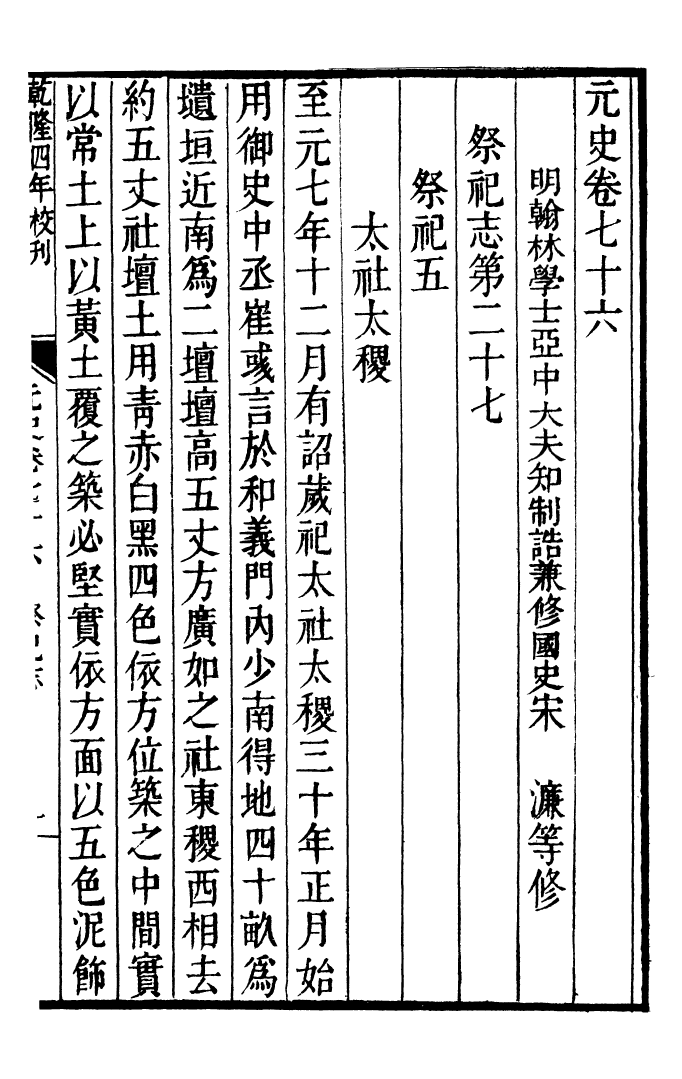 元史卷七十六
明翰林學士亞中大夫知制誥兼修國史宋　濂等修
祭祀志第二十七
祭祀五
太社太稷
至元七年十二月有詔歲祀太社太稷三十年正月始
用御史中丞崔彧言於和義門內少南得地四十畝爲
壝垣近南爲二壇壇高五丈方廣如之社東稷西相去
約五丈社壇土用靑赤白黑四色依方位築之中間實
以常土上以黃土覆之築必堅實依方面以五色泥飾
乾隆四年校刊